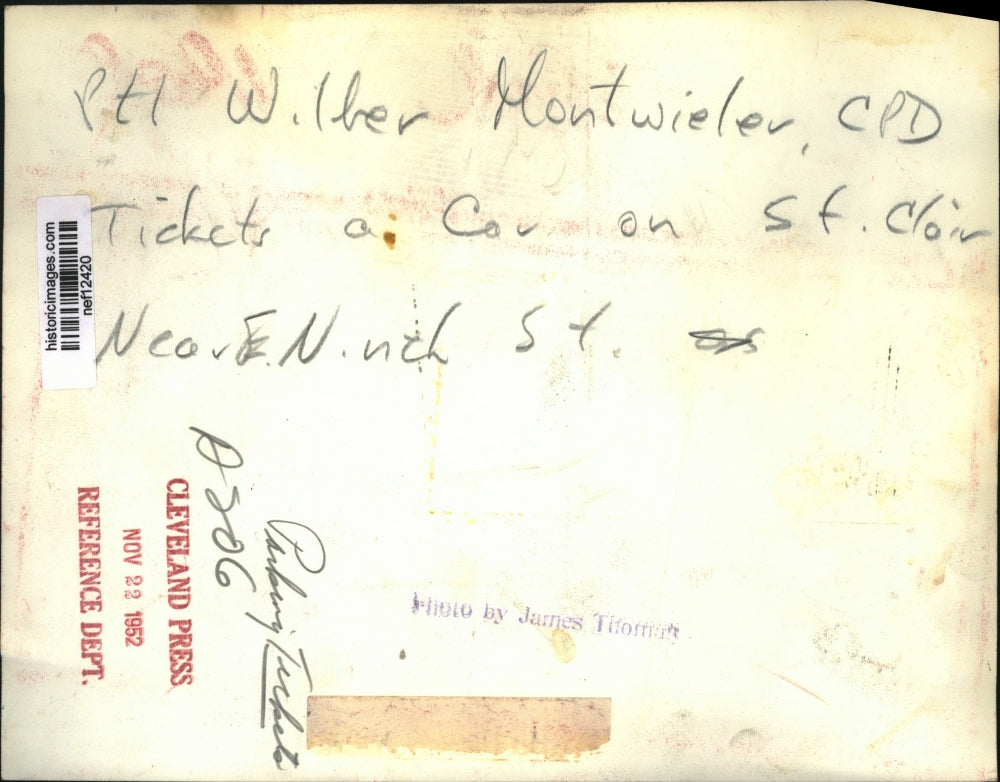 Ptl Wilber Montwieler, CPD
Tickets a Car on St. Clair
Near E. Ninth St.
historicimages.com
nef12420
A 206
Parking Tickets
CLEVELAND PRESS
NOV 22 1952
REFERENCE DEPT.
Photo by James Thomas